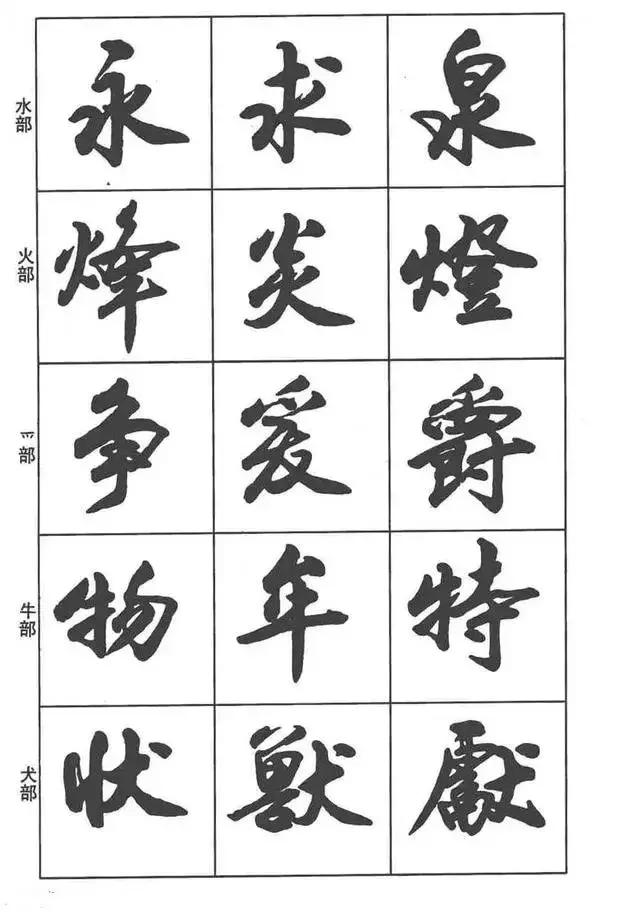 水部 永 求 泉
火部 烽 炎 燈
爫部 争 爰 爵
牛部 物 牟 特
犬部 状 獸 獻